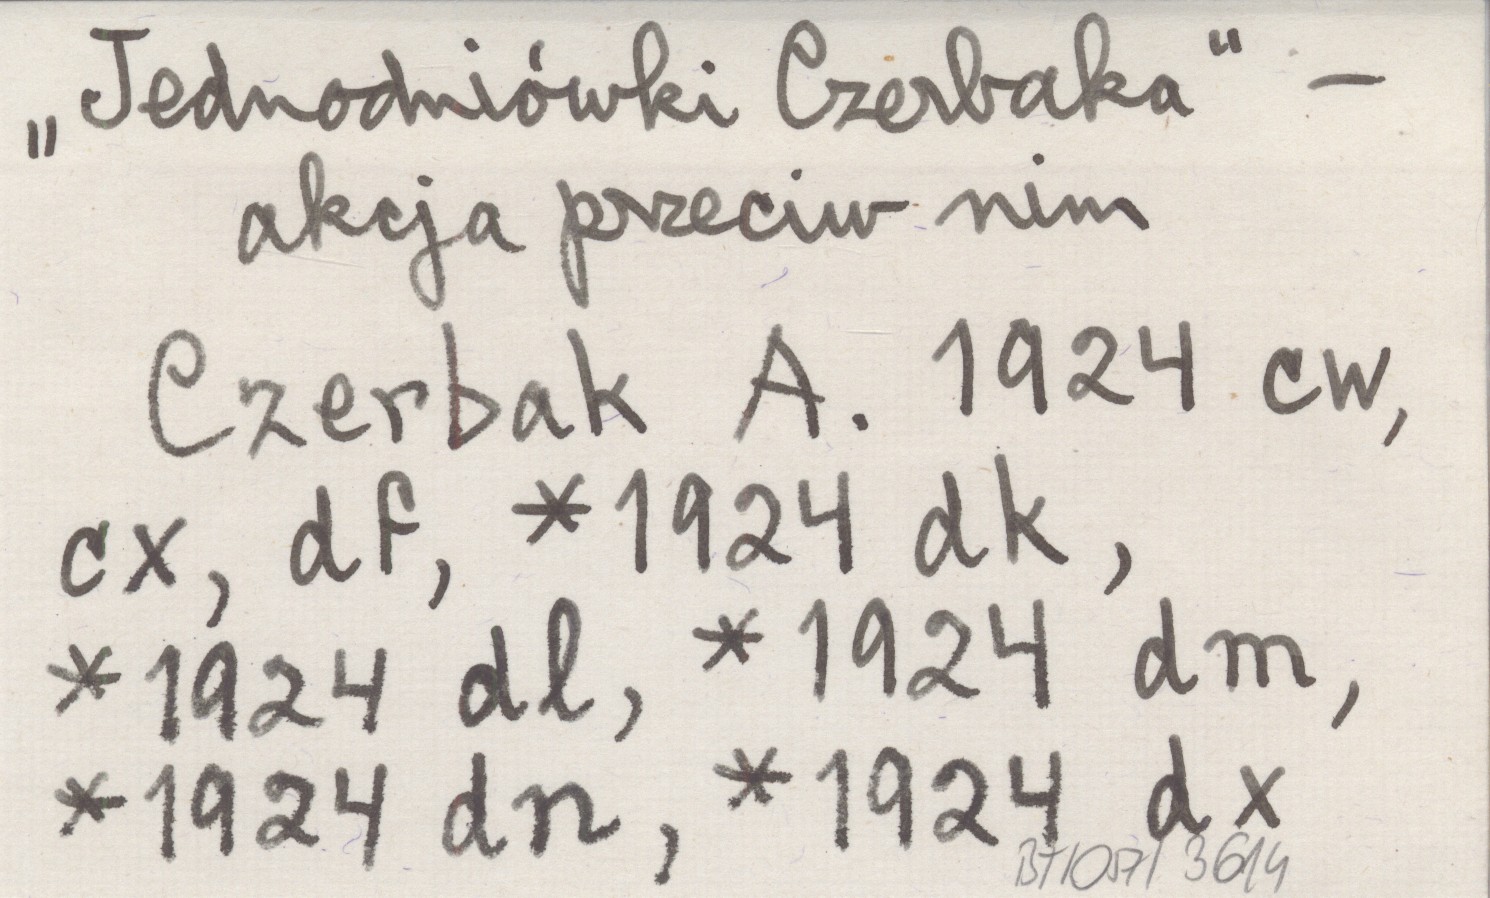 „Jednodniówki Czerbaka" –
akcja przeciw nim
Czerbak A. 1924 cw,
cx, df, *1924 dk,
*1924 dl, *1924 dm,
*1924 dn, *1924 dx
BT/057/3614